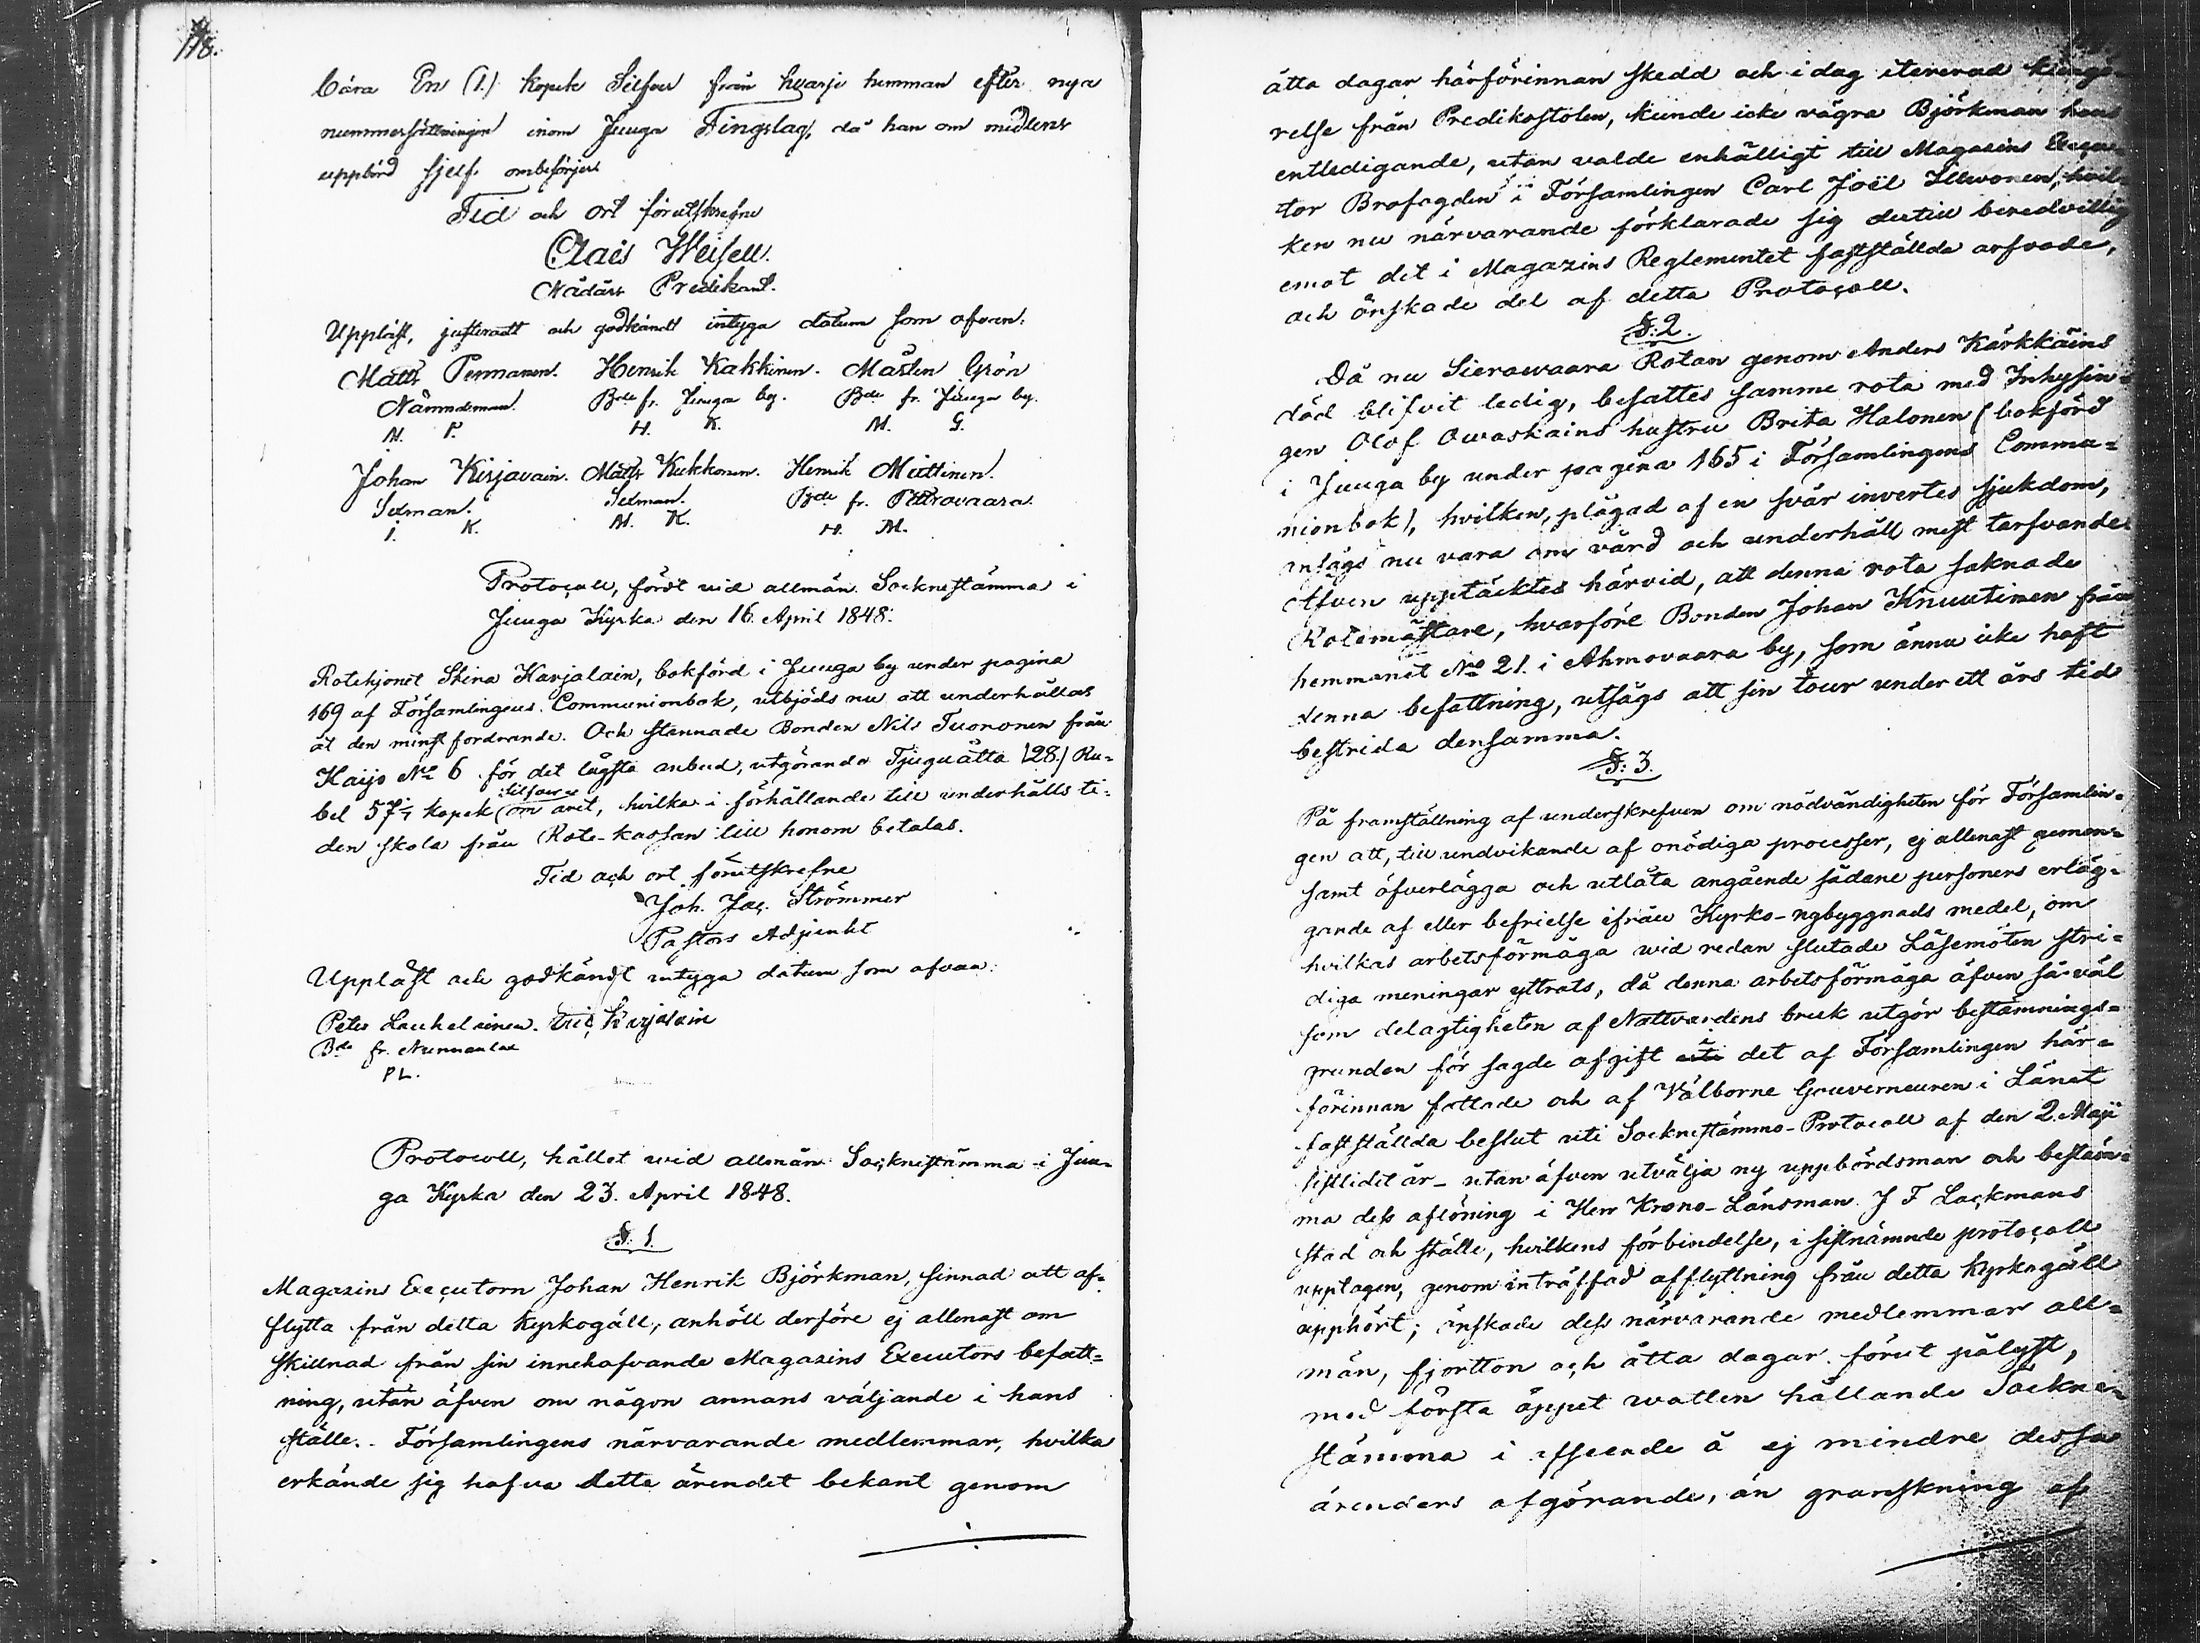 118.
bära En (1.) kopek Silfver från hvarje hemman efter nya
nummersättningen inom Juuga Tingslag, då han om medlens
uppbörd sjelf ombesörjer.
Tid och ort förutskrefne
Claës Weisell.
Nådårs Predikant.
Uppläst, justeradt och godkändt intyga datum som ofvan.
Matts Pennanen. Henrik Kakkinen. Mårten Grön
Nämndeman. Bde fr. Juuga by. Bde fr. Juuga by.
M. P. H. K. M. G.
Johan Kirjavain. Matts Kukkonen. Henrik Miettinen.
Sexman. Sexman. Bde fr. Petrovaara.
J. K. M. K. H. M.
Protocoll, fördt vid allmän Sockneftämma i
Juuga Kyrka den 16. April 1848.
Rotehjonet Stina Karjalain, bokförd i Juuga by under pagina
169 af Församlingens Communionbok, utbjöds nu att underhållas
åt den minst fordrande. Och stannade Bonden Nils Tuononen från
Kaijo No 6 för det lägsta anbud, utgörande Tjuguåtta (28.) Ru-
Silfver
bel 57 1/7 kopek om året, hvilka i förhållande till underhålls ti-
den skola från Rote-kassan till honom betalas.
Tid och ort förutskrefne
Joh. Jac. Strömmer
Pastors Adjunkt
Uppläst och godkändt intyga datum som ofvan.
Peter Laukelainen. Eric Karjalain
Bde fr. Nunnanlax
P L.
Protocoll, hållet wid allmän Socknestämma i Juu-
ga Kyrka den 23. April 1848.
§. 1.
Magazins Executorn Johan Henrik Björkman, sinnad att af-
flytta från detta Kyrkogäll, anhöll derföre ej allenast om
skillnad från sin innehafvande Magazins Executors befatt-
ning, utan äfven om någon annans väljande i hans
ställe. Församlingens närvarande medlemmar, hvilka
erkände sig hafva detta ärendet bekant genom
åtta dagar härförinnan skedd och i dag itererad kungö-
relse från Predikostolen, kunde icke vägra Björkman hans
entledigande, utan valde enhälligt till Magazins Execu-
tor Brofogden i Församlingen Carl Joël Ilwonen, hvil-
ken nu närvarande förklarade sig dertill beredvillig
emot det i Magazins Reglementet fastställda arfvode,
och önskade del af detta Protocoll.
§. 2.
Då nu Sierawaara Rotan genom Anders Kärkkäins
död blifvit ledig, besattes samme rota med Inhysin-
gen Olof Owaskains hustru Brita Halonen (bokförd
i Juuga by under pagina 165 i Församlingens Commu-
nionbok), hvilken, plågad af en svår invertes sjukdom,
ansågs nu vara om vård och underhåll mest tarfvande.
Äfven upptäcktes härvid, att denna rota saknade
Rotemästare, hvarföre Bonden Johan Knuutinen från
hemmanet No 21. i Ahmovaara by, som ännu icke haft
denna befattning, utsågs att sin tour under ett års tid
bestrida densamma.
§. 3.
På framställning af underskrefven om nödvändigheten för Församlin-
gen att, till undvikande af onödiga processer, ej allenast gemen-
samt öfverlägga och utlåta angående sådane personers erläg-
gande af eller befrielse ifrån Kyrko-nybyggnads medel, om
hvilkas arbetsförmåga wid redan slutade Läsemöten stri-
diga meningar yttrats, då denna arbetsförmåga äfven så väl
som delagtigheten af Nattvardens bruk utgör bestämnings-
grunden för sagde afgift uti det af Församlingen här-
förinnan fattade och af Välborne Gouverneuren i Länet
fastställda beslut uti Socknestämmo-Protocoll af den 2. Maji
sistlidit år - utan äfven utvälja ny uppbördsman och bestäm-
ma dess aflöning i Herr Krono-Länsman J F Lackmans
stad och ställe, hvilkens förbindelse, i sistnämnde protocoll
upptagen, genom inträffad afflyttning från detta Kyrkogäll
upphört; önskade dess närvarande medlemmar all-
män, fjortton och åtta dagar förut pålyst,
med första öppet watten hållande Sockne-
stämma i afseende å ej mindre dessa
ärenders afgörande, än granskning af